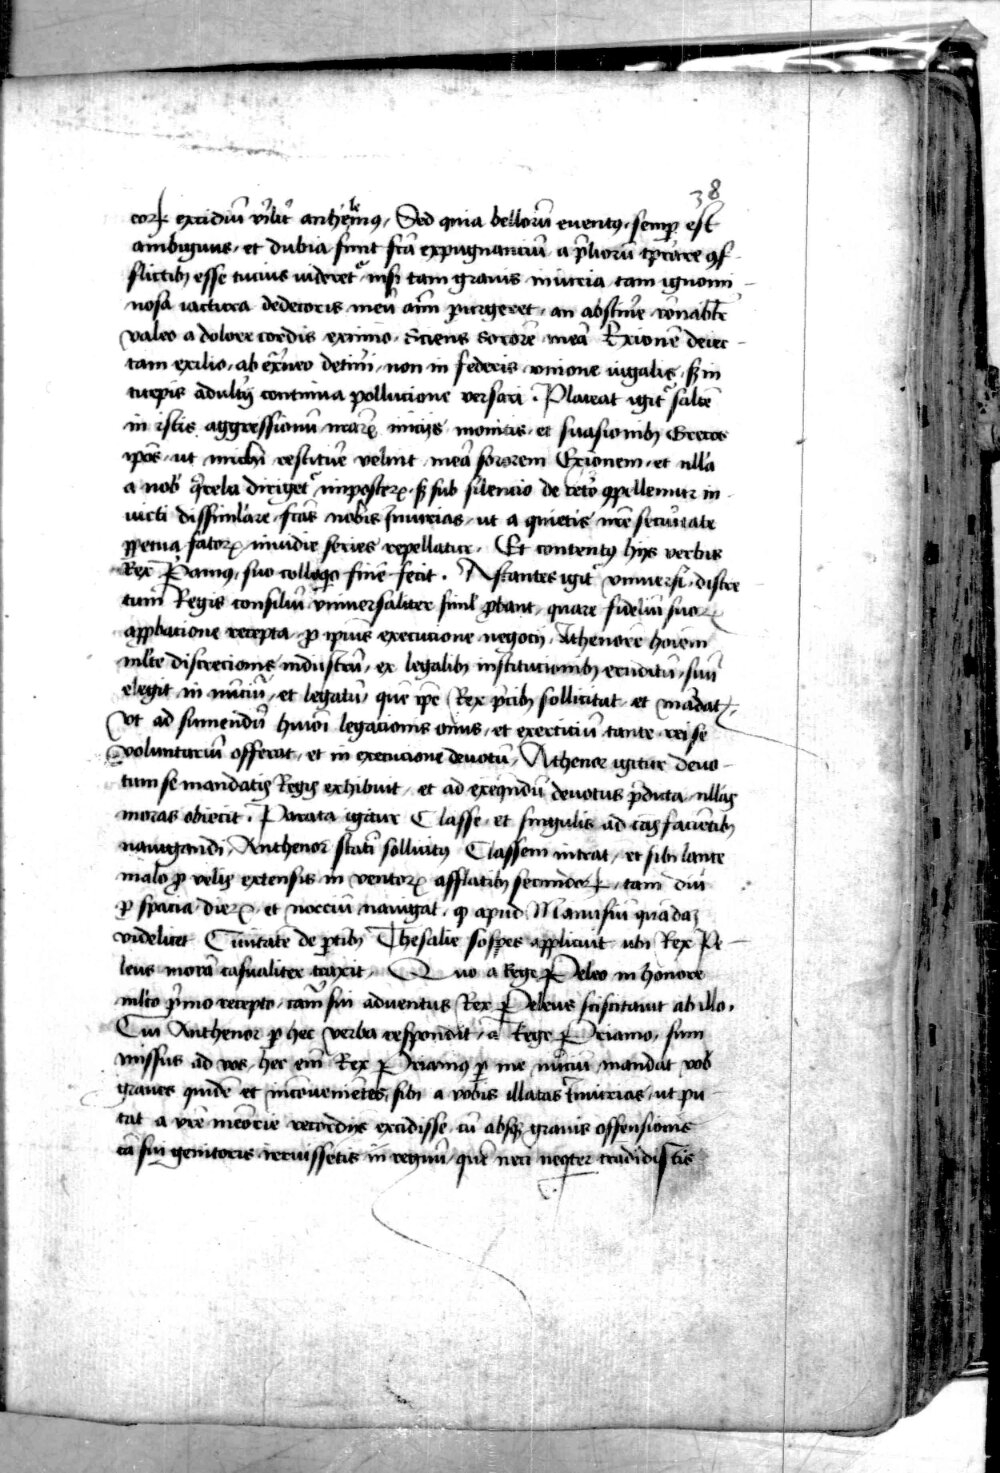 38
eorꝝ excidiū vīlit᷑ anhelemꝰ, Sed quia bellorū euentꝰ semꝑ est
ambiguus, et dubia sunt fc̄a expugnanciū a p̄lioꝝ
flictibꝫ esse tucius videret᷑ nisi tam grauis iniuria tam ignomi-
nosa iactura dedecoris meū aīm purgeret, an abstinē
valeo a dolore cordis extimo, Sciens sororē meā Exionē deiec-
tam exilio, ab ex̄neo detineri, non in federis vnione iugalis, sꝫ in
turpis adultīj continua pollucione versari. Placeat igit᷑ saltē
in istis aggressionū nr̄arꝝ inicijs monitis et suasionibꝫ Grecos
ip̄os, ut michi restituē velint meā sororem Exionem, et nlla
a nob̄ q̄rela diriget᷑ inposterꝝ, sꝫ sub silencio de cetō ꝯpellemur in-
uicti dissimlare fc̄as nobis Iniurias, ut a quietis nr̄e securitate
ꝑpetua fatorꝝ inuidie series repellatur. Et contentꝰ hijs verbis
Rex P̄amꝰ, suo colloqⁱo finē fecit. Astantes igit᷑ vniuersi, discre-
tum Regis consiliū vniuersaliter siml ꝓbant, quare fideliū suorꝝ
approbacione recepta, ꝓ ipius execucione negocij Athenorē hoīem
mlte discrecionis industriū, ex legalibꝫ institucionibꝫ eruditū, suū
elegit in nunciū, et legatū, quē ip̄e Rex p̄cibꝫ sollicitat et mandatꝭ,
Vt ad sumendū huiōi legacionis onus, et exerciciū tante rei se
voluntariū offerat, et in execucione deuotū, Athenor igitur deuo-
tum se mandatis Regis exhibuit, et ad exeqūdū deuotus p̄dicta nllas
moras obiecit. Parata igitur Classe, et singulis ad eas faciētibꝫ
nauigandi, Anthenor statī sollicitꝰ Classem intrat, et sibi lante
malo ꝓ velis extensis in ventorꝝ afflatibꝫ secundorꝝ, tam diu
ꝑ spacia dierꝝ et noctiū nauigat, ꝙ apud Manusiū quādaꝫ
videlicet Ciuitatē de p̄tibꝫ Thesalie sospes applicuit ubi Rex Pe-
leus morā casualiter traxit. Quo a Rege Peleo in honore
mlto p̄mo recepto, cam̄ sui aduentus Rex Peleus sciscitauit ab illo.
Cui Anthenor ꝑ hec verba respondit, a Rege Priamo, sum
missus ad vos, hec em̄ Rex Priamꝰ ꝑ me nuciū mandat vob̄
graues quidē et inconueniētes, sibi a vobis illatas Iniurias, ut pu-
tat a vr̄e mēorie recordijs excidisse, cū absqꝫ grauis offensionis
cā sui genitoris irruissetis in regnū, quē neci neqter tradidistis